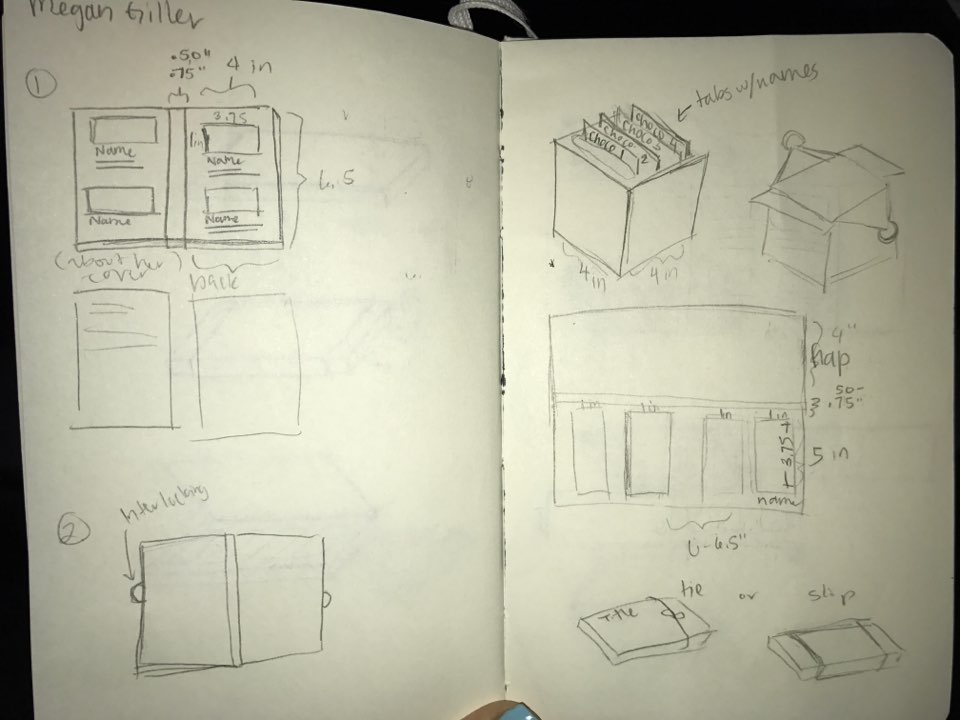 Megan Giller
1
.50"
.75"
4 in
3.75
1in
Name
Name
Name
Name
6.5
(about her)
cover
back
2
Interlocking
tabs w/names
choco 4
choco 3
choco 2
choco 1
4 in
4 in
4"
flap
.50-
.75"
1in
1in
1in
1in
3.75
5 in
name
6-6.5"
tie
or
slip
Title